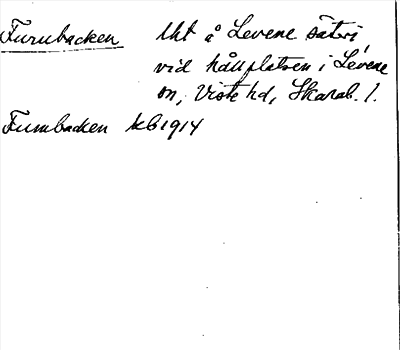 Furubacken Uht å Levene sätvi
vid hållplatsen i Levene
sn, Viste hd, Skarab. l.
Furubacken kb 1914